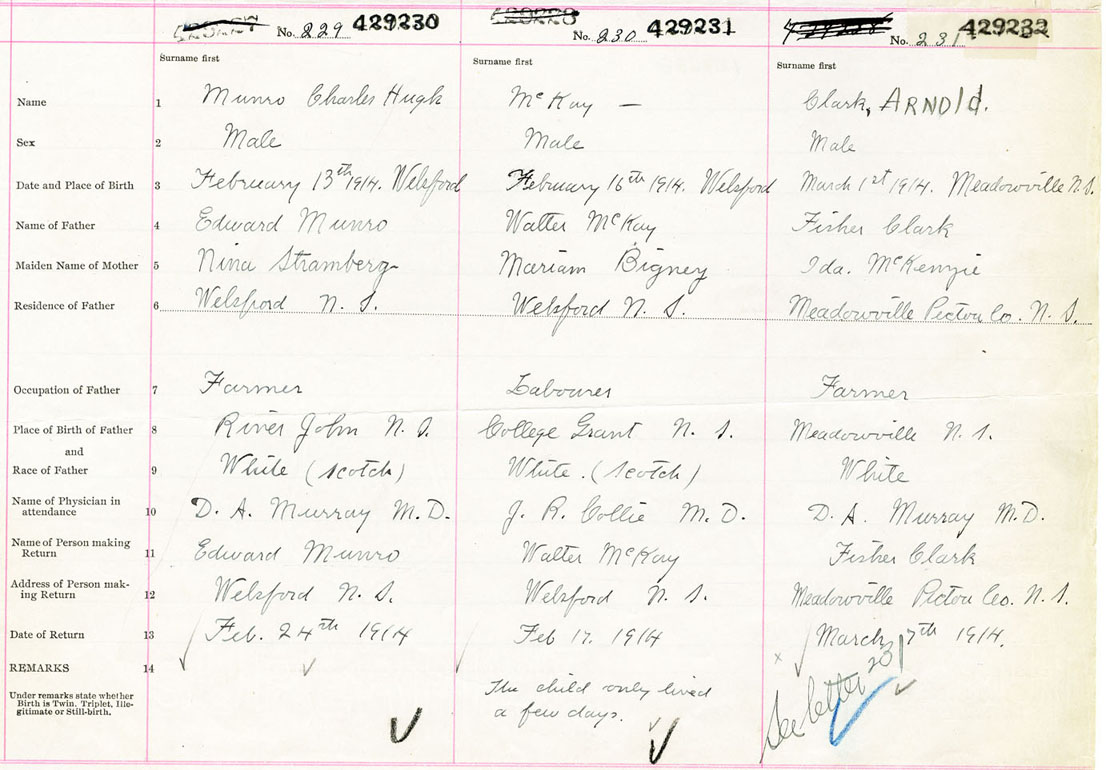 No. 229 429230 No. 230 429231 No. 231 429232
Surname first Surname first Surname first
Name 1 Munro Charles Hugh McKay — Clark, ARNOLd.
Sex 2 Male Male Male
Date and Place of Birth 3 February 13th 1914. Welsford February 16th 1914. Welsford March 1st 1914. Meadowville N.S.
Name of Father 4 Edward Munro Walter McKay Fisher Clark
Maiden Name of Mother 5 Nina Stramberg Mariam Bigney Ida. McKenzie
Residence of Father 6 Welsford N. S. Welsford N. S. Meadowville Pictou Co. N. S.
Occupation of Father 7 Farmer Labourer Farmer
Place of Birth of Father 8 River John N. S. College Grant N. S. Meadowville N. S.
and
Race of Father 9 White (Scotch) White. (Scotch) White
Name of Physician in
attendance 10 D. A. Murray M. D. J. R. Collie M. D. D. A. Murray M. D.
Name of Person making
Return 11 Edward Munro Walter McKay Fisher Clark
Address of Person mak-
ing Return 12 Welsford N. S. Welsford N. S. Meadowville Pictou Co. N. S.
Date of Return 13 Feb. 24th 1914 Feb 17. 1914 March 7th 1914.
REMARKS 14
Under remarks state whether
Birth is Twin, Triplet, Ille-
gitimate or Still-birth.
The child only lived
a few days.
See letter 231